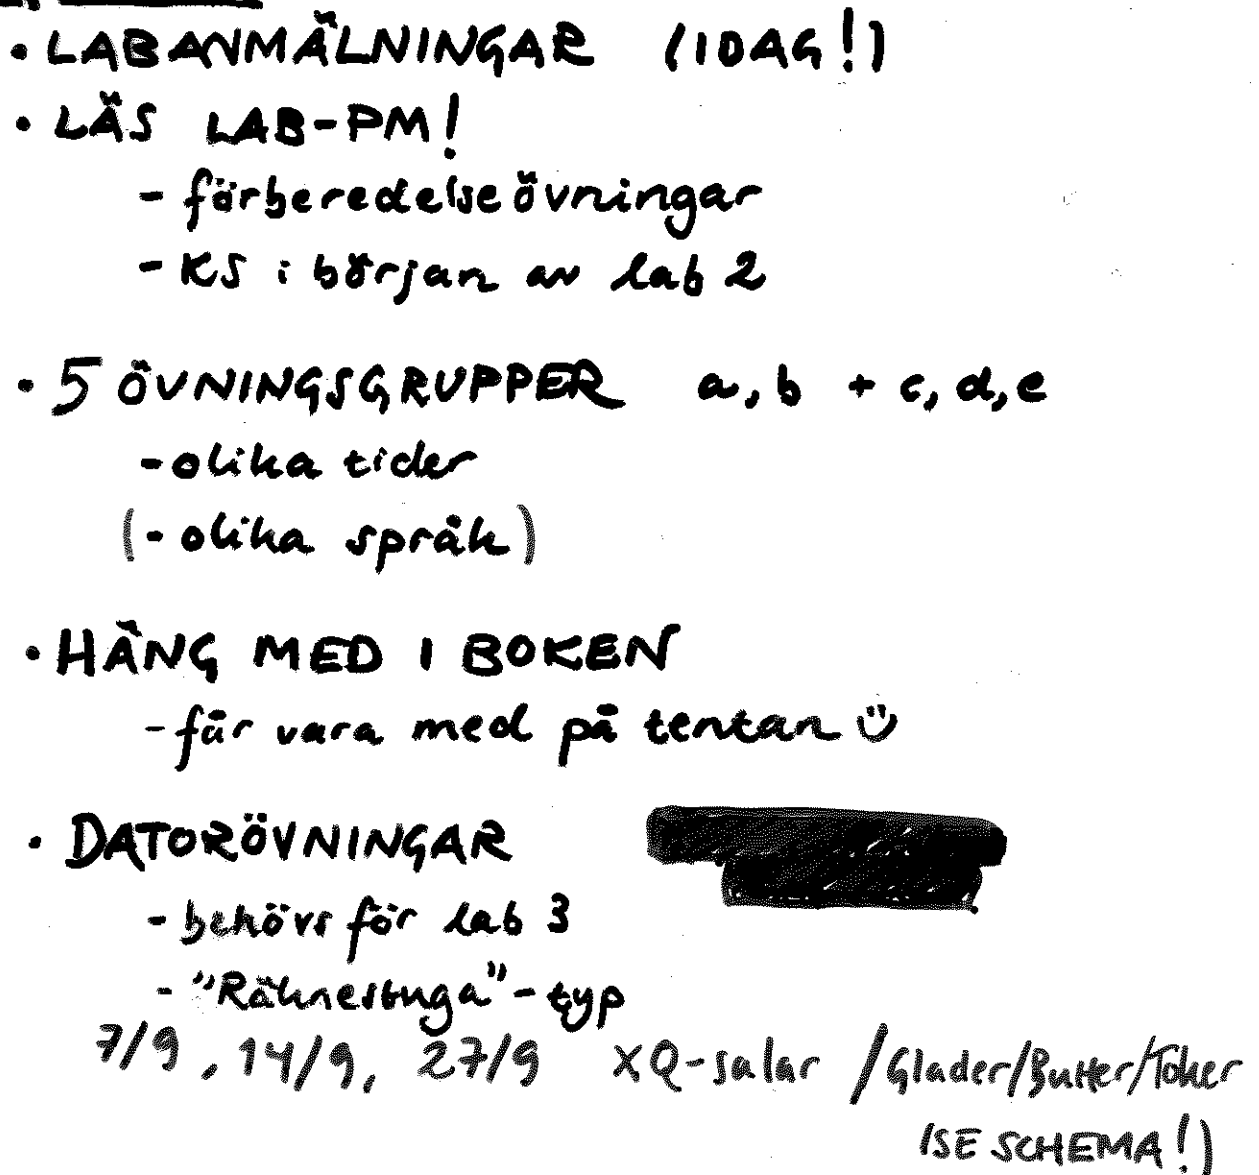 • LABANMÄLNINGAR (IDAG!)
• LÄS LAB-PM!
- förberedelseövningar
- KS i början av lab 2
• 5 ÖVNINGSGRUPPER a, b + c, d, e
- olika tider
(- olika språk)
• HÄNG MED I BOKEN
- får vara med på tentan ü
• DATORÖVNINGAR
- behövs för lab 3
- "Räknestuga"-typ
7/9, 14/9, 27/9 XQ-salar /Glader/Butter/Toker
(SE SCHEMA!)